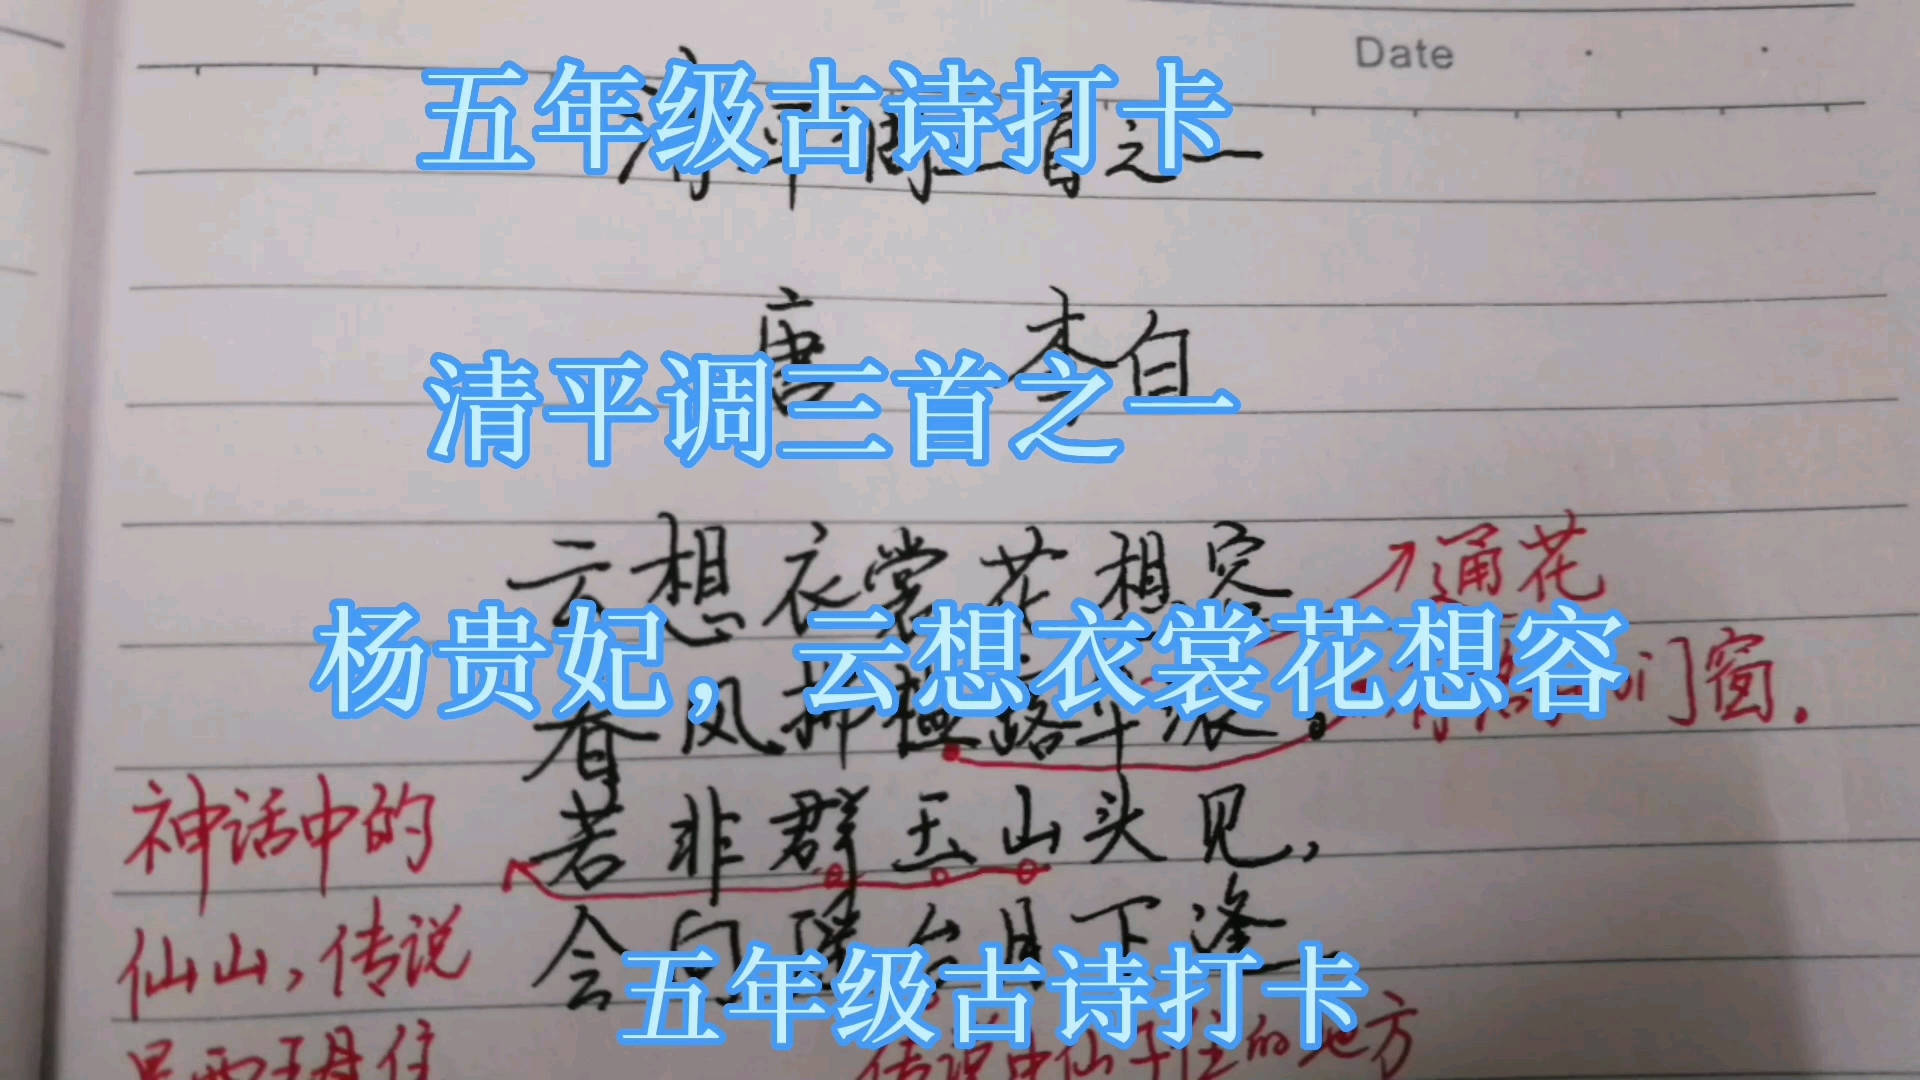 Date
五年级古诗打卡
清平调三首之一
唐 李白
清平调三首之一
云想衣裳花想容
通花
杨贵妃，云想衣裳花想容
春风拂槛露华浓。
门窗.
若非群玉山头见,
神话中的
会向瑶台月下逢
仙山,传说
五年级古诗打卡
是西王母住
传说中仙子住的地方